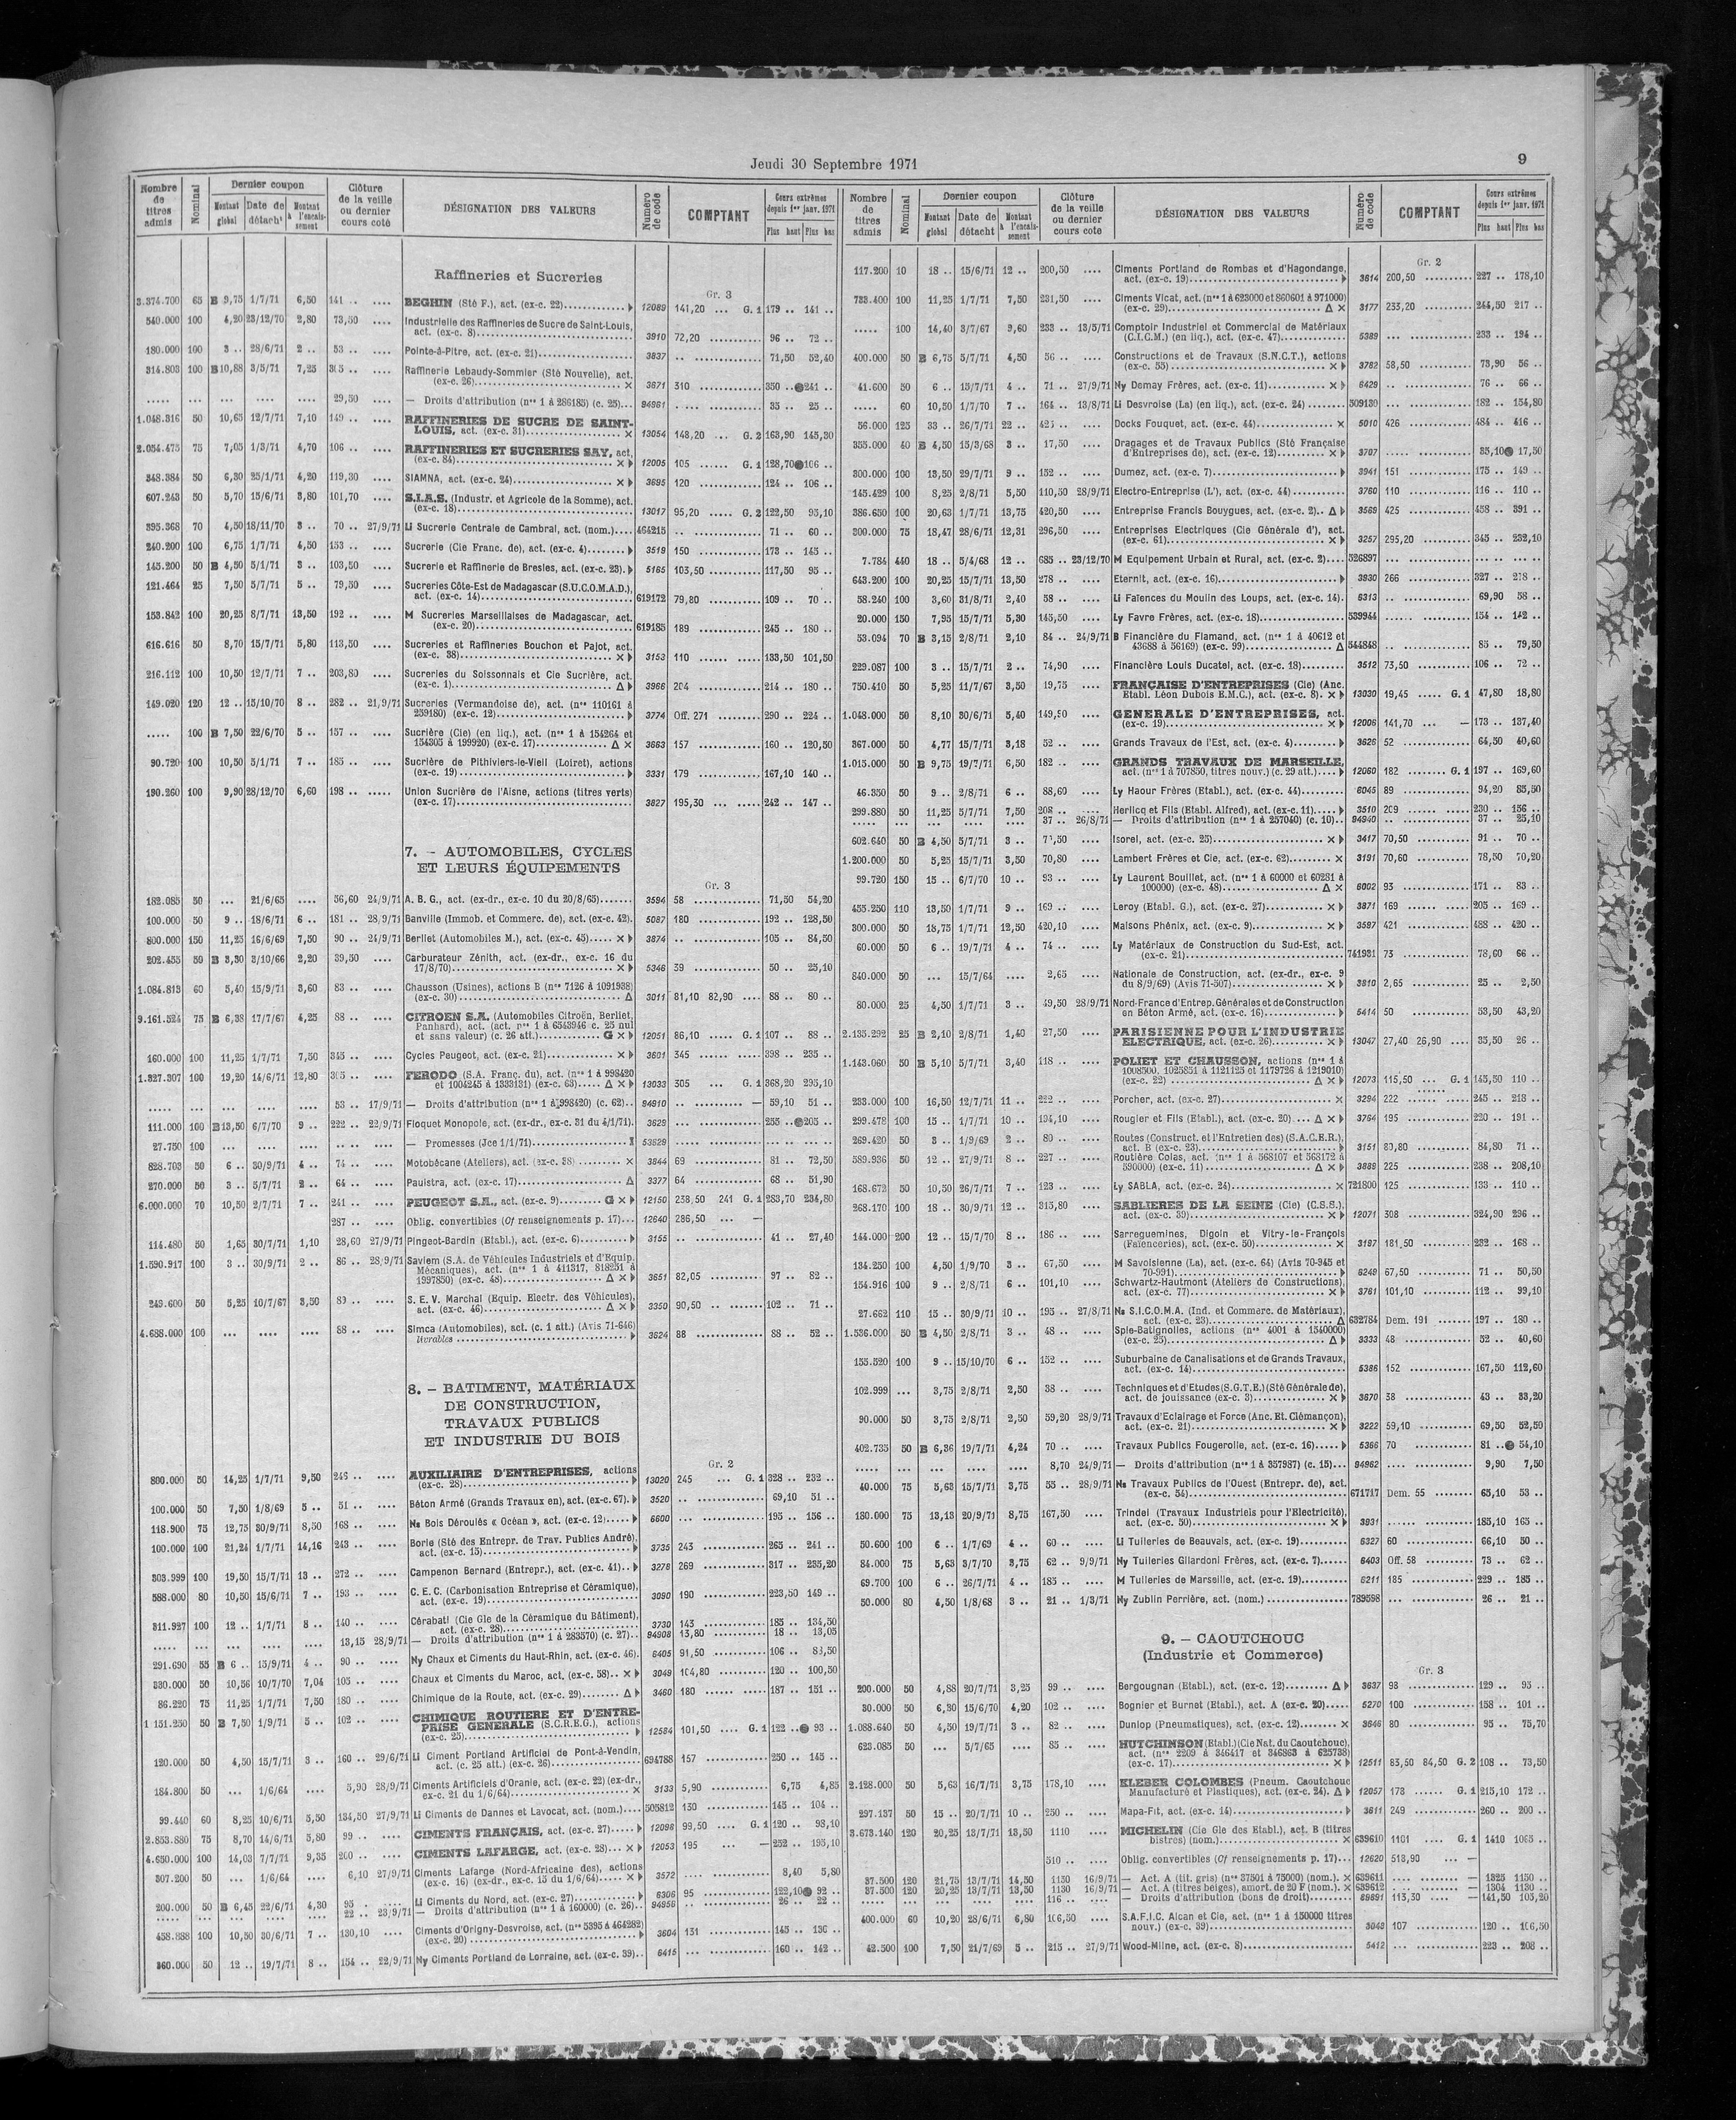 Jeudi 30 Septembre 1971
9
Nombre de titres admis
Nominal
Dernier coupon
Montant global
Date de détacht
Montant à l'encaissement
Clôture de la veille ou dernier cours coté
DÉSIGNATION DES VALEURS
Numéro de code
COMPTANT
Cours extrêmes depuis 1er janv. 1971
Plus haut
Plus bas
Raffineries et Sucreries
Gr. 3
BEGHIN (Sté F.), act. (ex-c. 22) 12089 141,20 ... G. 1 179 .. 141 ..
540.000 100 4,20 23/12/70 2,80 73,50 .... Industrielle des Raffineries de Sucre de Saint-Louis, act. (ex-c. 8) 3910 72,20 96 .. 72 ..
180.000 100 3 .. 28/6/71 2 .. 53 .. .... Pointe-à-Pitre, act. (ex-c. 21) 3837 .. 71,50 52,40
314.803 100 B 10,88 3/5/71 7,25 Raffinerie Lebaudy-Sommier (Sté Nouvelle), act. (ex-c. 26) × 3671 310 350 .. 241 ..
29,50 .... — Droits d'attribution (nos 1 à 286185) (c. 25) 94961 35 .. 25 ..
1.048.316 50 10,65 12/7/71 7,10 149 .. .... RAFFINERIES DE SUCRE DE SAINT-LOUIS, act. (ex-c. 31) × 13054 148,20 ... G. 2 163,90 145,30
2.054.475 75 7,05 1/3/71 4,70 106 .. .... RAFFINERIES ET SUCRERIES SAY, act. (ex-c. 84) 12005 105 G. 1 128,70 106 ..
348.384 50 6,30 25/1/71 4,20 119,30 .... SIAMNA, act. (ex-c. 24) 3695 120 124 .. 106 ..
607.243 50 5,70 15/6/71 3,80 101,70 .... S.I.A.S. (Industr. et Agricole de la Somme), act. (ex-c. 18) 13017 95,20 G. 2 122,50 95,10
395.368 70 4,50 18/11/70 3 .. 70 .. 27/9/71 Li Sucrerie Centrale de Cambrai, act. (nom.) 464215 .. 71 .. 60 ..
240.200 100 6,75 1/7/71 4,50 153 .. .... Sucrerie (Cie Franc. de), act. (ex-c. 4) 3519 150 173 .. 145 ..
145.200 50 B 4,50 5/1/71 3 .. 103,50 .... Sucrerie et Raffinerie de Bresles, act. (ex-c. 23) 5165 103,50 117,50 95 ..
121.464 25 7,50 5/7/71 5 .. 79,50 .... Sucreries Côte-Est de Madagascar (S.U.C.O.M.A.D.), act. (ex-c. 14) 619172 79,80 109 .. 70 ..
153.842 100 20,25 8/7/71 13,50 192 .. .... M Sucreries Marseillaises de Madagascar, act. (ex-c. 20) 619185 189 245 .. 180 ..
616.616 50 8,70 15/7/71 5,80 113,50 .... Sucreries et Raffineries Bouchon et Pajot, act. (ex-c. 38) 3153 110 133,50 101,50
216.112 100 10,50 12/7/71 7 .. 203,80 .... Sucreries du Soissonnais et Cie Sucrière, act. (ex-c. 1) 3966 204 214 .. 180 ..
149.020 120 12 .. 15/10/70 8 .. 282 .. 21/9/71 Sucreries (Vermandoise de), act. (nos 110161 à 259180) (ex-c. 12) 3774 Off. 271 290 .. 224 ..
..... 100 B 7,50 22/6/70 5 .. 157 .. .... Sucrière (Cie) (en liq.), act. (nos 1 à 154264 et 154305 à 199920) (ex-c. 17) Δ × 3663 157 160 .. 120,50
90.720 100 10,50 5/1/71 7 .. 185 .. .... Sucrière de Pithiviers-le-Vieil (Loiret), actions (ex-c. 19) 3331 179 167,10 140 ..
190.260 100 9,90 28/12/70 6,60 198 .. .... Union Sucrière de l'Aisne, actions (titres verts) (ex-c. 17) 3827 195,30 242 .. 147 ..
7. - AUTOMOBILES, CYCLES
ET LEURS ÉQUIPEMENTS
Gr. 3
182.085 50 ... 21/6/65 .... 56,60 24/9/71 A. B. G., act. (ex-dr., ex-c. 10 du 20/8/65) 3594 58 71,50 54,20
100.000 50 9 .. 18/6/71 6 .. 181 .. 28/9/71 Banville (Immob. et Commerc. de), act. (ex-c. 42) 5087 180 192 .. 128,50
800.000 150 11,25 16/6/69 7,50 90 .. 24/9/71 Berliet (Automobiles M.), act. (ex-c. 45) 3874 .. 105 .. 84,50
202.455 50 B 3,30 3/10/66 2,20 39,50 .... Carburateur Zénith, act. (ex-dr., ex-c. 16 du 17/8/70) 5346 39 50 .. 25,10
1.084.813 60 5,40 15/9/71 3,60 83 .. .... Chausson (Usines), actions B (nos 7126 à 1091938) (ex-c. 30) Δ 3011 81,10 82,90 88 .. 80 ..
9.161.524 75 B 6,38 17/7/67 4,25 88 .. .... CITROEN S.A. (Automobiles Citroën, Berliet, Panhard), act. (act. nos 1 à 6543946 c. 25 nul et sans valeur) (c. 26 att.) 12051 86,10 G. 1 107 .. 88 ..
160.000 100 11,25 1/7/71 7,50 345 .. .... Cycles Peugeot, act. (ex-c. 21) 3601 345 398 .. 235 ..
1.327.307 100 19,20 14/6/71 12,80 305 .. .... FERODO (S.A. Franç. du), act. (nos 1 à 998420 et 1004245 à 1333131) (ex-c. 63) 13033 305 G. 1 368,20 295,10
53 .. 17/9/71 — Droits d'attribution (nos 1 à 998420) (c. 62) 94910 .. — 59,10 51 ..
111.000 100 B 13,50 6/7/70 9 .. 222 .. 22/9/71 Floquet Monopole, act. (ex-dr., ex-c. 31 du 4/1/71) 3629 ... 255 .. 205 ..
27.750 100 — Promesses (Jce 1/1/71) 53629
828.703 50 6 .. 30/9/71 4 .. 74 .. .... Motobécane (Ateliers), act. (ex-c. 38) × 3844 69 81 .. 72,50
270.000 50 3 .. 5/7/71 2 .. 64 .. .... Paulstra, act. (ex-c. 17) Δ 3377 64 68 .. 51,90
6.000.000 70 10,50 2/7/71 7 .. 241 .. .... PEUGEOT S.A., act. (ex-c. 9) 12150 238,50 241 G. 1 283,70 234,80
287 .. .... Oblig. convertibles (Cf renseignements p. 17) 12640 286,50 ... —
114.480 50 1,65 30/7/71 1,10 28,60 27/9/71 Pingeot-Bardin (Etabl.), act. (ex-c. 6) 3155 .. 41 .. 27,40
1.590.917 100 3 .. 30/9/71 2 .. 86 .. 28/9/71 Saviem (S.A. de Véhicules Industriels et d'Equip. Mécaniques), act. (nos 1 à 411317, 818251 à 1997850) (ex-c. 48) 3651 82,05 97 .. 82 ..
249.600 50 5,25 10/7/67 3,50 .... S. E. V. Marchal (Equip. Electr. des Véhicules), act. (ex-c. 46) 3350 90,50 102 .. 71 ..
4.688.000 100 ... .... .... 88 .. .... Simca (Automobiles), act. (c. 1 att.) (Avis 71-646) livrables 3624 88 88 .. 52 ..
8. - BATIMENT, MATÉRIAUX
DE CONSTRUCTION,
TRAVAUX PUBLICS
ET INDUSTRIE DU BOIS
Gr. 2
800.000 50 14,25 1/7/71 9,50 246 .. .... AUXILIAIRE D'ENTREPRISES, actions (ex-c. 28) 13020 245 ... G. 1 328 .. 232 ..
100.000 50 7,50 1/8/69 5 .. 51 .. .... Béton Armé (Grands Travaux en), act. (ex-c. 67) 3520 .. 69,10 51 ..
118.900 75 12,75 30/9/71 8,50 168 .. .... Ns Bois Déroulés « Océan », act. (ex-c. 12) 6600 ... 195 .. 156 ..
100.000 100 21,24 1/7/71 14,16 243 .. .... Borie (Sté des Entrepr. de Trav. Publics André), act. (ex-c. 15) 3735 243 265 .. 241 ..
303.999 100 19,50 15/7/71 13 .. 272 .. .... Campenon Bernard (Entrepr.), act. (ex-c. 41) 3278 269 317 .. 235,20
588.000 80 10,50 15/6/71 7 .. 193 .. .... C. E. C. (Carbonisation Entreprise et Céramique), act. (ex-c. 19) 3090 190 223,50 149 ..
311.927 100 12 .. 1/7/71 8 .. 140 .. .... Cérabati (Cie Gle de la Céramique du Bâtiment), act. (ex-c. 28) 3730 143 185 .. 134,50
13,15 28/9/71 — Droits d'attribution (nos 1 à 283570) (c. 27) 94908 13,80 18 .. 13,05
291.690 55 B 6 .. 15/9/71 4 .. 90 .. .... Ny Chaux et Ciments du Haut-Rhin, act. (ex-c. 46) 6405 91,50 106 .. 83,50
330.000 50 10,56 10/7/70 7,04 105 .. .... Chaux et Ciments du Maroc, act. (ex-c. 58) 3049 104,80 120 .. 100,50
86.220 75 11,25 1/7/71 7,50 180 .. .... Chimique de la Route, act. (ex-c. 29) 3460 180 187 .. 151 ..
1 151.250 50 B 7,50 1/9/71 5 .. 102 .. .... CHIMIQUE ROUTIERE ET D'ENTREPRISE GENERALE (S.C.R.E.G.), actions (ex-c. 25) 12584 101,50 G. 1 122 .. 93 ..
120.000 50 4,50 15/7/71 3 .. 160 .. 29/6/71 Li Ciment Portland Artificiel de Pont-à-Vendin, act. (c. 25 att.) (ex-c. 26) 694788 157 250 .. 145 ..
184.800 50 ... 1/6/64 .... 5,90 28/9/71 Ciments Artificiels d'Oranie, act. (ex-c. 22) (ex-dr., ex-c. 21 du 1/6/64) × 3133 5,90 6,75 4,85
99.440 60 8,25 10/6/71 5,50 134,50 27/9/71 Li Ciments de Dannes et Lavocat, act. (nom.) 505812 130 145 .. 104 ..
2.853.880 75 8,70 14/6/71 5,80 99 .. .... CIMENTS FRANÇAIS, act. (ex-c. 27) 12098 99,50 G. 1 120 .. 98,10
4.650.000 100 14,03 7/7/71 9,35 200 .. .... CIMENTS LAFARGE, act. (ex-c. 28) 12053 195 — 252 .. 195,10
307.200 50 ... 1/6/64 .... 6,10 27/9/71 Ciments Lafarge (Nord-Africaine des), actions (ex-c. 16) (ex-dr., ex-c. 15 du 1/6/64) 3572 .... 8,40 5,80
200.000 50 B 6,45 22/6/71 4,30 95 .. Li Ciments du Nord, act. (ex-c. 27) 6306 95 122,10 92 ..
22 .. 23/9/71 — Droits d'attribution (nos 1 à 160000) (c. 26) 94958 .. 26 .. 22 ..
458.888 100 10,50 30/6/71 7 .. 130,10 .... Ciments d'Origny-Desvroise, act. (nos 5395 à 464282) (ex-c. 20) 3604 131 145 .. 136 ..
360.000 50 12 .. 19/7/71 8 .. 154 .. 22/9/71 Ny Ciments Portland de Lorraine, act. (ex-c. 39) 6415 ... 160 .. 142 ..
Nombre de titres admis
Nominal
Dernier coupon
Montant global
Date de détacht
Montant à l'encaissement
Clôture de la veille ou dernier cours coté
DÉSIGNATION DES VALEURS
Numéro de code
COMPTANT
Cours extrêmes depuis 1er janv. 1971
Plus haut
Plus bas
Gr. 2
117.200 10 18 .. 15/6/71 12 .. 200,50 .... Ciments Portland de Rombas et d'Hagondange, act. (ex-c. 19) 3614 200,50 227 .. 178,10
733.400 100 11,25 1/7/71 7,50 231,50 .... Ciments Vicat, act. (nos 1 à 623000 et 860601 à 971000) (ex-c. 29) Δ × 3177 233,20 244,50 217 ..
..... 100 14,40 3/7/67 9,60 233 .. 13/5/71 Comptoir Industriel et Commercial de Matériaux (C.I.C.M.) (en liq.), act. (ex-c. 47) 5389 ... 233 .. 194 ..
400.000 50 B 6,75 5/7/71 4,50 56 .. .... Constructions et de Travaux (S.N.C.T.), actions (ex-c. 55) 3782 58,50 73,90 56 ..
41.600 50 6 .. 15/7/71 4 .. 71 .. 27/9/71 Ny Demay Frères, act. (ex-c. 11) 6429 .. 76 .. 66 ..
..... 60 10,50 1/7/70 7 .. 164 .. 13/8/71 Li Desvroise (La) (en liq.), act. (ex-c. 24) 509130 ... 182 .. 154,80
56.000 125 33 .. 26/7/71 22 .. Docks Fouquet, act. (ex-c. 44) × 5010 426 484 .. 416 ..
355.000 40 B 4,50 15/3/68 3 .. 17,50 .... Dragages et de Travaux Publics (Sté Française d'Entreprises de), act. (ex-c. 12) 3707 35,10 17,50
300.000 100 13,50 29/7/71 9 .. 152 .. .... Dumez, act. (ex-c. 7) 3941 151 175 .. 149 ..
145.429 100 8,25 2/8/71 5,50 110,50 28/9/71 Electro-Entreprise (L'), act. (ex-c. 44) 3760 110 116 .. 110 ..
386.650 100 20,63 1/7/71 13,75 420,50 .... Entreprise Francis Bouygues, act. (ex-c. 2) 3569 425 458 .. 391 ..
300.000 75 18,47 28/6/71 12,31 296,50 .... Entreprises Electriques (Cie Générale d'), act. (ex-c. 61) 3257 295,20 345 .. 232,10
7.784 440 18 .. 5/4/68 12 .. 685 .. 23/12/70 M Equipement Urbain et Rural, act. (ex-c. 2) 526897
643.200 100 20,25 15/7/71 13,50 278 .. .... Eternit, act. (ex-c. 16) 3930 266 327 .. 218 ..
58.240 100 3,60 31/8/71 2,40 58 .. .... Li Faïences du Moulin des Loups, act. (ex-c. 14) 6313 .. 69,90 58 ..
20.000 150 7,95 15/7/71 5,30 145,50 .... Ly Favre Frères, act. (ex-c. 18) 539944 154 .. 142 ..
53.094 70 B 3,15 2/8/71 2,10 84 .. 24/9/71 B Financière du Flamand, act. (nos 1 à 40612 et 43688 à 56169) (ex-c. 99) Δ 544848 .. 85 .. 79,50
229.087 100 3 .. 15/7/71 2 .. 74,90 Financière Louis Ducatel, act. (ex-c. 18) 3512 73,50 106 .. 72 ..
750.410 50 5,25 11/7/67 3,50 19,75 FRANÇAISE D'ENTREPRISES (Cie) (Anc. Etabl. Léon Dubois E.M.C.), act. (ex-c. 8) 13030 19,45 G. 1 47,80 18,80
1.048.000 50 8,10 30/6/71 5,40 149,50 .... GENERALE D'ENTREPRISES, act. (ex-c. 19) 12006 141,70 — 173 .. 137,40
367.000 50 4,77 15/7/71 3,18 52 .. .... Grands Travaux de l'Est, act. (ex-c. 4) 3626 52 64,50 40,60
1.015.000 50 B 9,75 19/7/71 6,50 182 .. .... GRANDS TRAVAUX DE MARSEILLE, act. (nos 1 à 707850, titres nouv.) (c. 29 att.) 12060 182 G. 1 197 .. 169,60
46.350 50 9 .. 2/8/71 6 .. 88,60 .... Ly Haour Frères (Etabl.), act. (ex-c. 44) 6045 89 94,20 85,50
299.880 50 11,25 5/7/71 7,50 208 .. .... Herlicq et Fils (Etabl. Alfred), act. (ex-c. 11) 3510 209 230 .. 156 ..
37 .. 26/8/71 — Droits d'attribution (nos 1 à 257040) (c. 10) 94940 .. 37 .. 25,10
602.640 50 B 4,50 5/7/71 3 .. 71,50 .... Isorel, act. (ex-c. 25) 3417 70,50 91 .. 70 ..
1.200.000 50 5,25 15/7/71 3,50 70,80 .... Lambert Frères et Cie, act. (ex-c. 62) × 3191 70,60 78,50 70,20
99.720 150 15 .. 6/7/70 10 .. 93 .. .... Ly Laurent Bouillet, act. (nos 1 à 60000 et 60281 à 100000) (ex-c. 48) Δ × 6002 93 171 .. 83 ..
455.250 110 13,50 1/7/71 9 .. 169 .. .... Leroy (Etabl. G.), act. (ex-c. 27) 3871 169 205 .. 169 ..
300.000 50 18,75 1/7/71 12,50 420,10 .... Maisons Phénix, act. (ex-c. 9) 3597 421 488 .. 420 ..
60.000 50 6 .. 19/7/71 4 .. 74 .. .... Ly Matériaux de Construction du Sud-Est, act. (ex-c. 21) 741931 73 78,60 66 ..
840.000 50 ... 15/7/64 .... 2,65 .... Nationale de Construction, act. (ex-dr., ex-c. 9 du 8/9/69) (Avis 71-507) 3810 2,65 25 .. 2,50
80.000 25 4,50 1/7/71 3 .. 49,50 28/9/71 Nord-France d'Entrep. Générales et de Construction en Béton Armé, act. (ex-c. 16) 5414 50 53,50 43,20
2.135.292 25 B 2,10 2/8/71 1,40 27,50 .... PARISIENNE POUR L'INDUSTRIE ELECTRIQUE, act. (ex-c. 26) 13047 27,40 26,90 35,50 26 ..
1.143.060 50 B 5,10 5/7/71 3,40 118 .. .... POLIET ET CHAUSSON, actions (nos 1 à 1008500, 1025851 à 1121125 et 1179726 à 1219010) (ex-c. 22) 12073 115,50 G. 1 145,50 110 ..
233.000 100 16,50 12/7/71 11 .. 222 .. .... Porcher, act. (ex-c. 27) × 3294 222 245 .. 213 ..
299.478 100 15 .. 1/7/71 10 .. 194,10 .... Rougier et Fils (Etabl.), act. (ex-c. 20) 3764 195 220 .. 191 ..
269.420 50 3 .. 1/9/69 2 .. 80 .. .... Routes (Construct. et l'Entretien des) (S.A.C.E.R.), act. B (ex-c. 23) 3151 80,80 84,80 71 ..
589.936 50 12 .. 27/9/71 8 .. 227 .. .... Routière Colas, act. (nos 1 à 568107 et 568172 à 590000) (ex-c. 11) 3889 225 238 .. 208,10
168.672 50 10,50 26/7/71 7 .. 123 .. .... Ly SABLA, act. (ex-c. 24) × 721800 125 133 .. 110 ..
268.170 100 18 .. 30/9/71 12 .. 315,80 .... SABLIERES DE LA SEINE (Cie) (C.S.S.), act. (ex-c. 39) 12071 308 324,90 296 ..
144.000 200 12 .. 15/7/70 8 .. 186 .. .... Sarreguemines, Digoin et Vitry-le-François (Faïenceries), act. (ex-c. 50) × 3187 181,50 232 .. 168 ..
134.250 100 4,50 1/9/70 3 .. 67,50 .... M Savoisienne (La), act. (ex-c. 64) (Avis 70-945 et 70-991) 6249 67,50 71 .. 50,50
154.916 100 9 .. 2/8/71 6 .. 101,10 .... Schwartz-Hautmont (Ateliers de Constructions), act. (ex-c. 77) 3761 101,10 112 .. 99,10
27.662 110 15 .. 30/9/71 10 .. 195 .. 27/8/71 Ns S.I.C.O.M.A. (Ind. et Commerc. de Matériaux), act. (ex-c. 23) Δ 632784 Dem. 191 197 .. 180 ..
1.536.000 50 B 4,50 2/8/71 3 .. 48 .. .... Spie-Batignolles, actions (nos 4001 à 1540000) (ex-c. 25) 3333 48 52 .. 40,60
155.520 100 9 .. 15/10/70 6 .. 152 .. .... Suburbaine de Canalisations et de Grands Travaux, act. (ex-c. 14) 5386 152 167,50 112,60
102.999 ... 3,75 2/8/71 2,50 38 .. .... Techniques et d'Etudes (S.G.T.E.) (Sté Générale de), act. de jouissance (ex-c. 3) 3670 38 43 .. 33,20
90.000 50 3,75 2/8/71 2,50 59,20 28/9/71 Travaux d'Eclairage et Force (Anc. Et. Clémançon), act. (ex-c. 21) 3222 59,10 69,50 52,50
402.735 50 B 6,36 19/7/71 4,24 70 .. .... Travaux Publics Fougerolle, act. (ex-c. 16) 5366 70 81 .. 54,10
8,70 24/9/71 — Droits d'attribution (nos 1 à 357987) (c. 15) 94962 .... 9,90 7,50
40.000 75 5,63 15/7/71 3,75 55 .. 28/9/71 Ns Travaux Publics de l'Ouest (Entrepr. de), act. (ex-c. 54) 671717 Dem. 55 65,10 53 ..
180.000 75 13,13 20/9/71 8,75 167,50 .... Trindel (Travaux Industriels pour l'Electricité), act. (ex-c. 50) 3931 185,10 165 ..
50.600 100 6 .. 1/7/69 4 .. 60 .. .... Li Tuileries de Beauvais, act. (ex-c. 19) 6327 60 66,10 50 ..
84.000 75 5,63 3/7/70 3,75 62 .. 9/9/71 Ny Tuileries Gilardoni Frères, act. (ex-c. 7) 6403 Off. 58 73 .. 62 ..
69.700 100 6 .. 26/7/71 4 .. 185 .. .... M Tuileries de Marseille, act. (ex-c. 19) 6211 185 229 .. 185 ..
50.000 80 4,50 1/8/68 3 .. 21 .. 1/3/71 Ny Zublin Perrière, act. (nom.) 789598 ... 26 .. 21 ..
9. - CAOUTCHOUC
(Industrie et Commerce)
Gr. 3
200.000 50 4,88 20/7/71 3,25 99 .. .... Bergougnan (Etabl.), act. (ex-c. 12) 3637 98 129 .. 95 ..
30.000 50 6,30 15/6/70 4,20 102 .. .... Bognier et Burnet (Etabl.), act. A (ex-c. 20) 5270 100 158 .. 101 ..
1.088.640 50 4,50 19/7/71 3 .. 82 .. .... Dunlop (Pneumatiques), act. (ex-c. 12) × 3646 80 95 .. 75,70
623.085 50 ... 5/7/65 85 .. .... HUTCHINSON (Etabl.) (Cie Nat. du Caoutchouc), act. (nos 2209 à 346417 et 346863 à 625738) (ex-c. 17) 12511 83,50 84,50 G. 2 108 .. 73,50
2.128.000 50 5,63 16/7/71 3,75 178,10 .... KLEBER COLOMBES (Pneum. Caoutchouc Manufacturé et Plastiques), act. (ex-c. 24) 12057 178 G. 1 215,10 172 ..
297.137 50 15 .. 20/7/71 10 .. 250 .. .... Mapa-Fit, act. (ex-c. 14) 3611 249 260 .. 200 ..
3.673.140 120 20,25 13/7/71 13,50 1110 .... MICHELIN (Cie Gle des Etabl.), act. B (titres bistres) (nom.) × 639610 1101 G. 1 1410 1065 ..
510 .. .... Oblig. convertibles (Cf renseignements p. 17) 12620 518,90 ... —
37.500 120 21,75 13/7/71 14,50 1130 16/9/71 — Act. A (tit. gris) (nos 37501 à 75000) (nom.) × 639611 — 1325 1150 ..
37.500 120 20,25 13/7/71 13,50 1130 16/9/71 — Act. A (titres belges), amort. de 20 F (nom.) × 639612 — 1304 1130 ..
116 .. — Droits d'attribution (bons de droit) 69691 113,30 — 141,50 103,20
400.000 60 10,20 28/6/71 6,80 106,50 .... S.A.F.I.C. Alcan et Cie, act. (nos 1 à 150000 titres nouv.) (ex-c. 39) 3048 107 120 .. 106,50
42.500 100 7,50 21/7/69 5 .. 215 .. 27/9/71 Wood-Milne, act. (ex-c. 8) 5412 ... 223 .. 208 ..